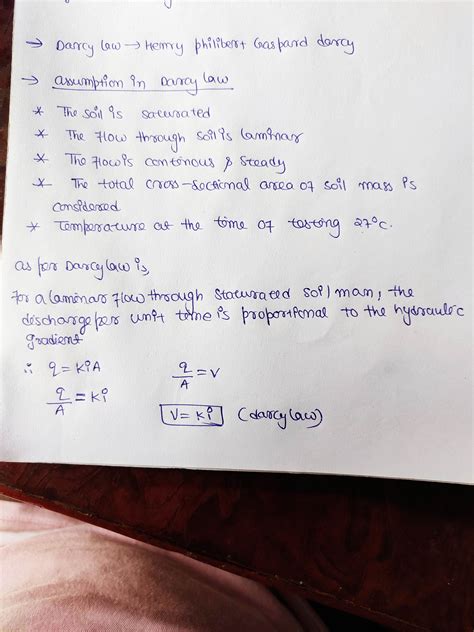 → Darcy law → Henry philibert Gaspard darcy
→ assumption in Darcy law
* The soil is saturated
* The flow through soil is laminar
* The flow is continous & steady
* The total cross-sectional area of soil mass is
considered
* Temperature at the time of testing 27°c.
as per Darcy law is,
For a laminar flow through staturated soil man, the
discharge per unit time is proportional to the hydraulic
gradient
∴ q = KiA    q/A = V
q/A = Ki    V = Ki (darcy law)